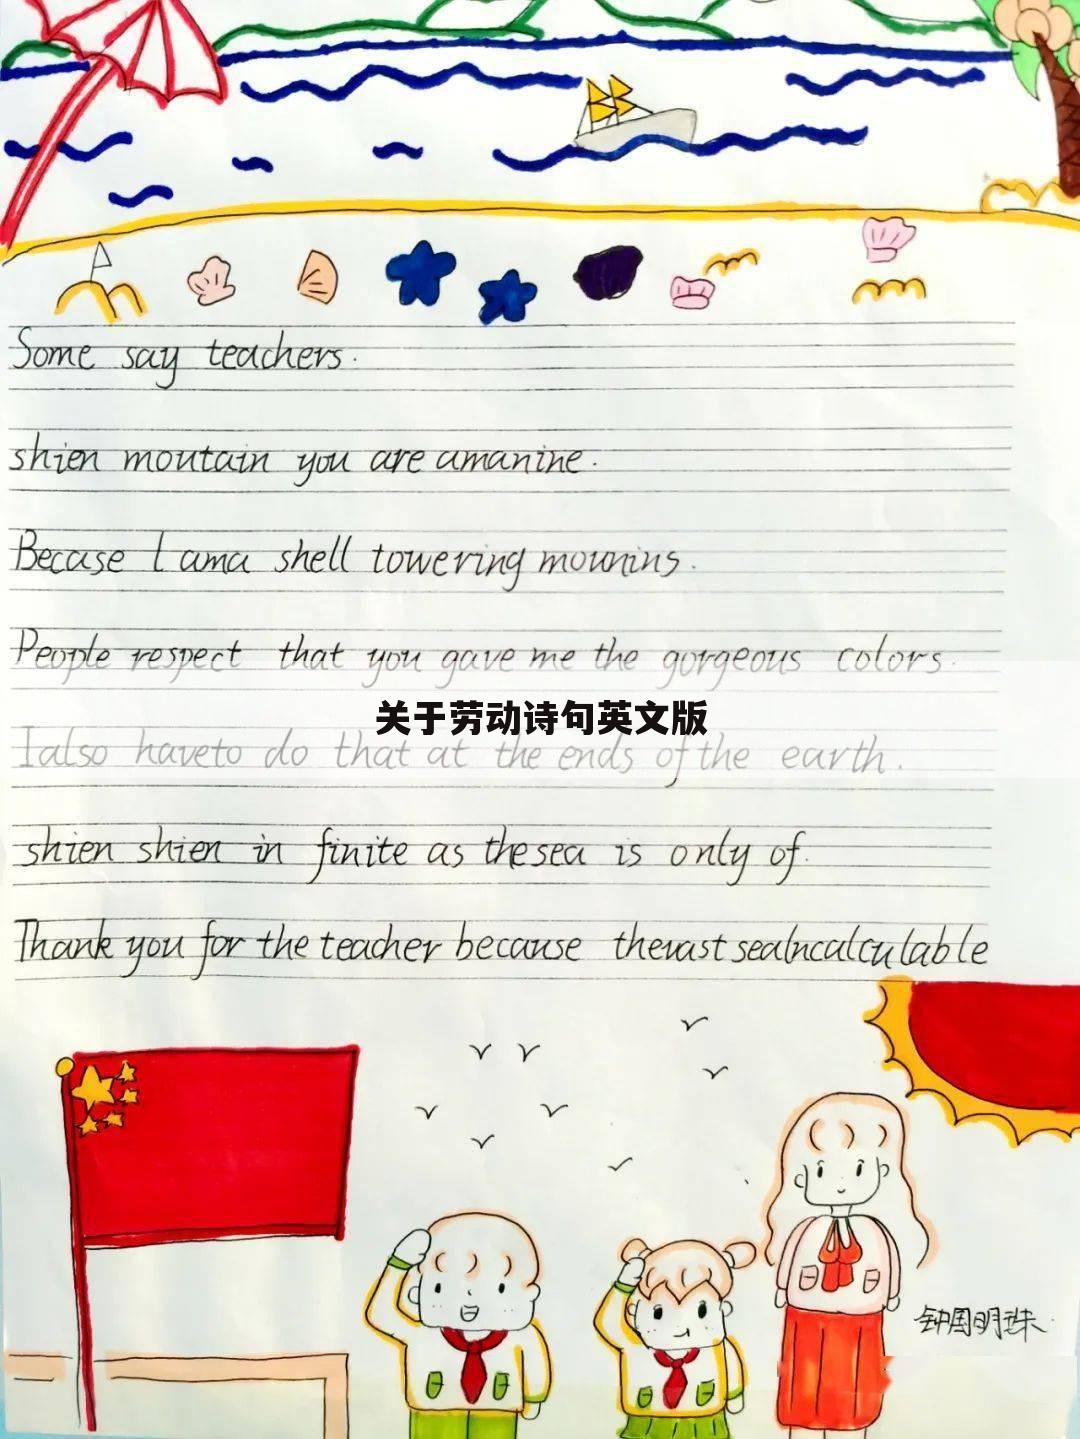 Some say teachers.
shien moutain you are amanine.
Becase I ama shell towering mounins.
People respect that you gave me the gorgeous colors.
关于劳动诗句英文版
Ialso haveto do that at the ends of the earth.
shien shien in finite as thesea is only of.
Thank you for the teacher because thevast sealncalculable
钟国明珠